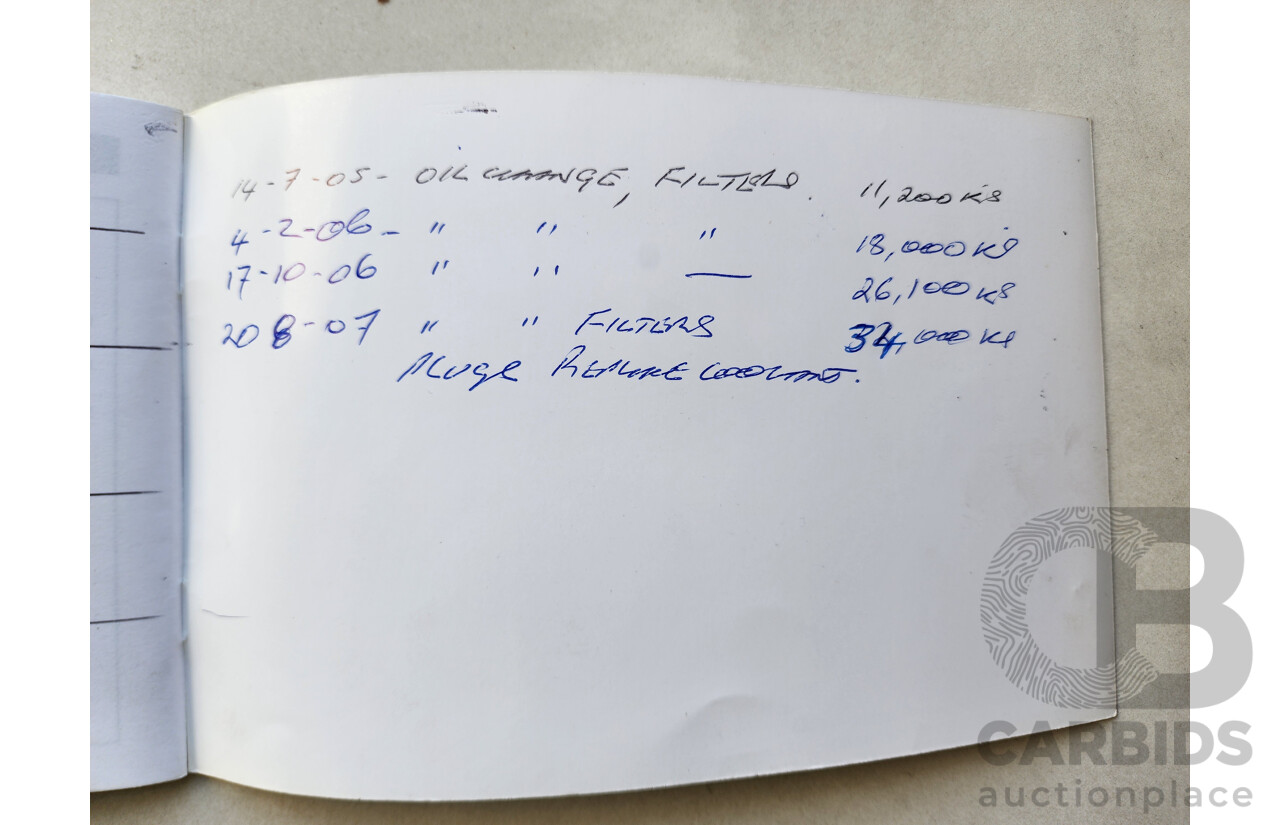 14-7-05- OIL CHANGE, FILTERS. 11,200 KS
4-2-06- " " " 18,000 KS
17-10-06 " " — 26,100 KS
20 8-07 " " FILTERS 34,000 KS
REPLACE COOLANT.
CB
CARBIDS
auctionplace